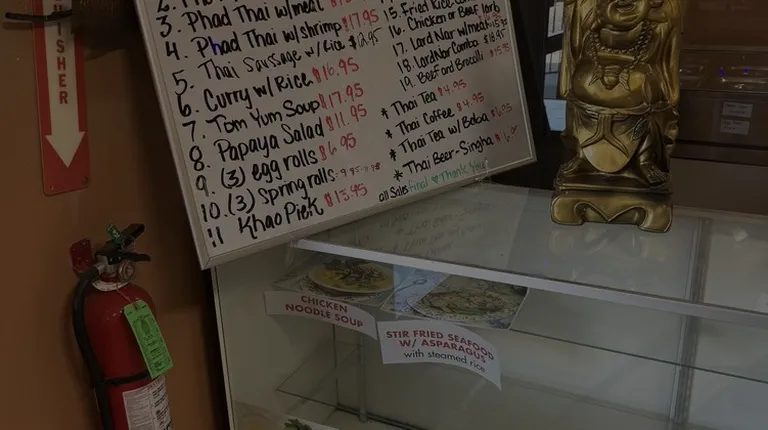 UISHER
3. Phad Thai w/meat
4. Phad Thai w/shrimp $17.95
5. Thai Sausage w/Rice $12.95
6. Curry w/Rice $16.95
7. Tom Yum Soup $17.95
8. Papaya Salad $11.95
9. (3) egg rolls $6.95
10. (3) Spring rolls
11 Khao Piek $15.95
15. Fried Rice
16. Chicken or Beef larb
17. Lard Nar w/meat
18. Lard Nar Combo $18.95
19. Beef and Brocolli $15.95
* Thai Tea $4.95
* Thai Coffee $4.95
* Thai Tea w/ Boba
* Thai Beer-Singha
all Sales final Thank You
CHICKEN
NOODLE SOUP
STIR FRIED SEAFOOD
W/ ASPARAGUS
with steamed rice